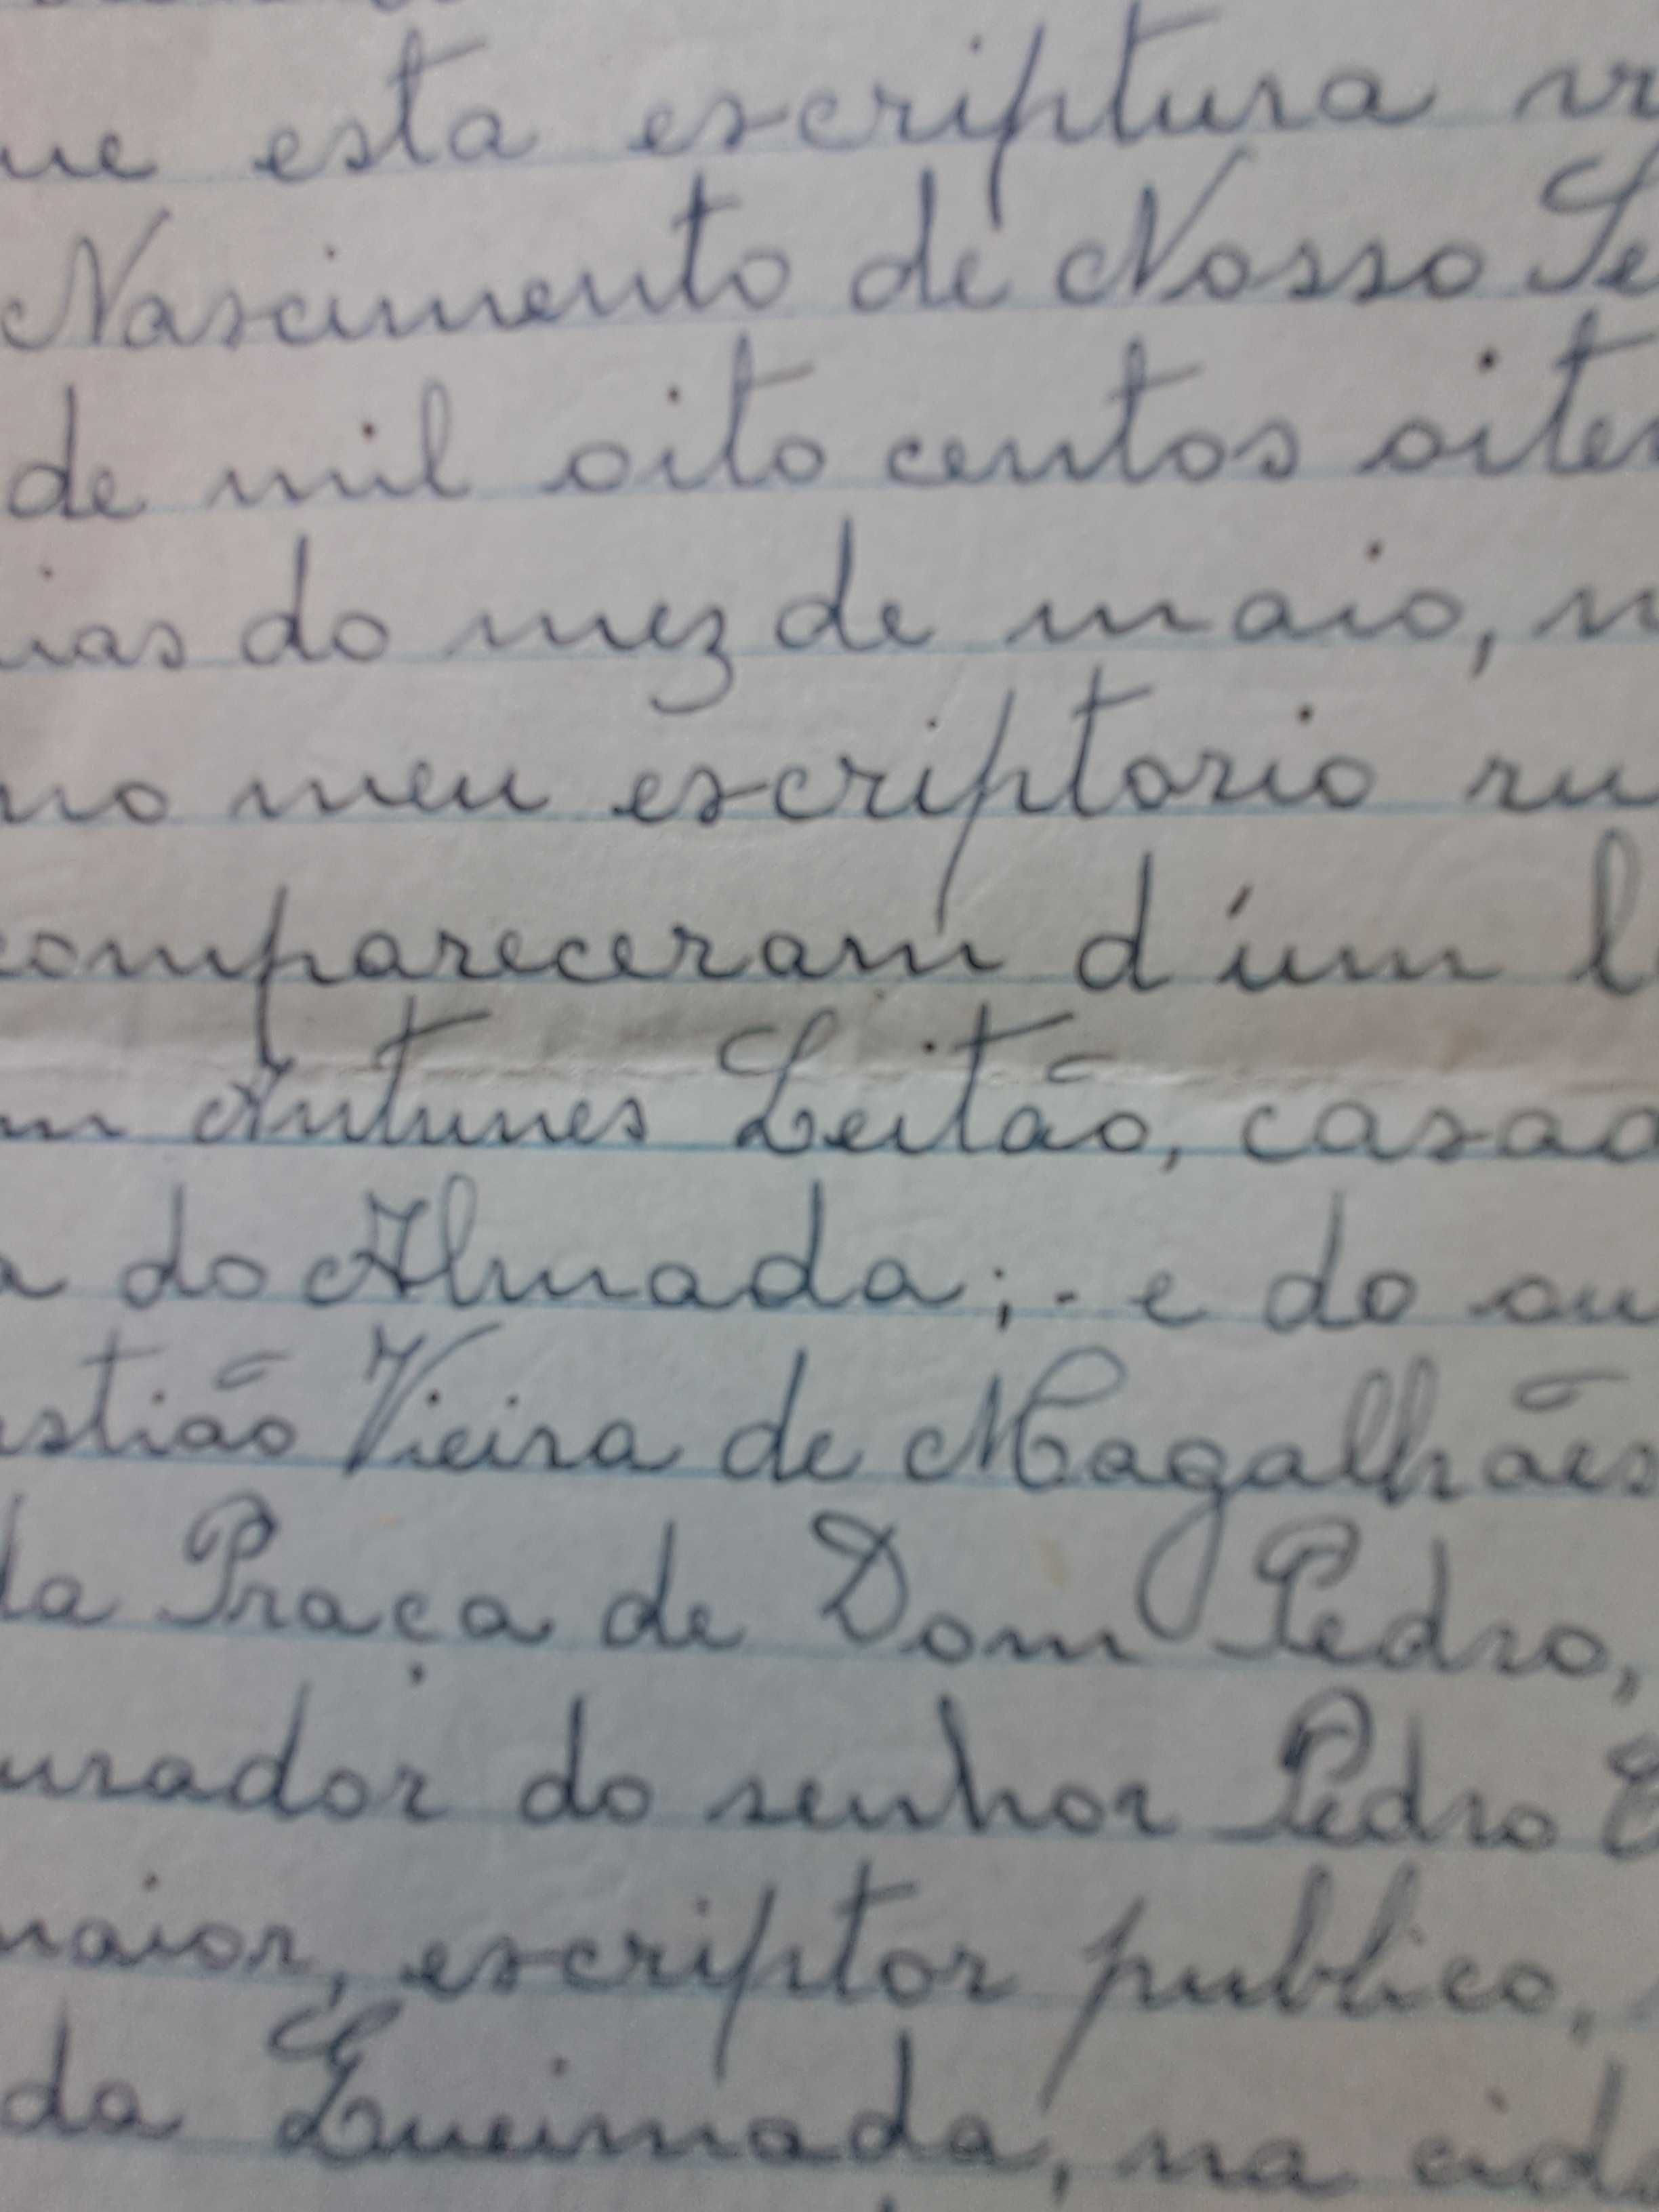 ue esta escriptura vi
Nascimento de Nosso Se
de mil oito centos oiten
ias do mez de maio, n
no meu escriptorio ru
compareceram d'um l
m Antunes Leitão, casad
a do Almada; - e do ou
stião Vieira de Magalhães
da Praça de Dom Pedro,
urador do senhor Pedro
maior, escriptor publico,
da Queimada, na cida